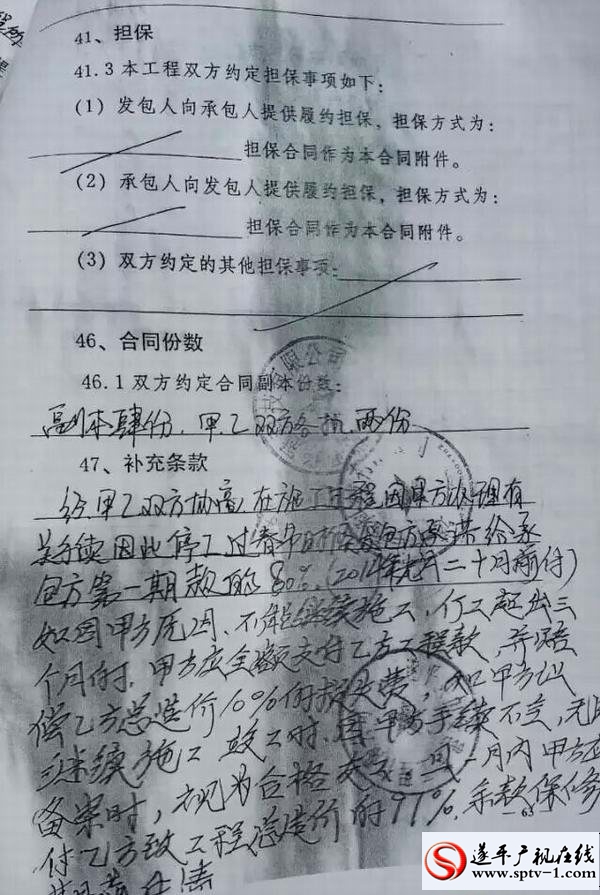 41、担保
41.3本工程双方约定担保事项如下：
（1）发包人向承包人提供履约担保，担保方式为：
担保合同作为本合同附件。
（2）承包人向发包人提供履约担保，担保方式为：
担保合同作为本合同附件。
（3）双方约定的其他担保事项：
46、合同份数
46.1双方约定合同副本份数：
副本肆份，甲乙双方各执两份
47、补充条款
经甲乙双方协商，在施工过程因甲方办理有
关手续因此停工，过春年时发包方承诺给承
包方第一期款的80%。（2014年元月二十日前付）
如因甲方原因，不能继续施工，停工超出三
个月时，甲方应全额支付乙方工程款，并赔
偿乙方总造价10%的损失费，如甲方
继续施工 竣工时，因甲方手续不全，无
备案时，视为合格 一月内甲方应
付乙方致工程总造价的97%，余款保修
-63-
遂平广视在线
www.sptv-1.com